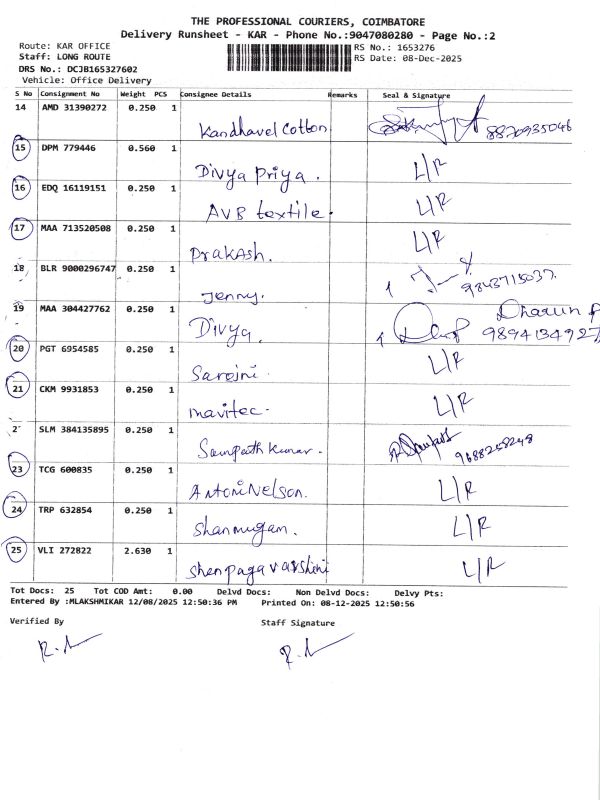 THE PROFESSIONAL COURIERS, COIMBATORE
Delivery Runsheet - KAR - Phone No.:9047080280 - Page No.:2
Route: KAR OFFICE RS No.: 1653276
Staff: LONG ROUTE RS Date: 08-Dec-2025
DRS No.: DCJB165327602
Vehicle: Office Delivery
S No Consignment No Weight PCS Consignee Details Remarks Seal & Signature
14 AMD 31390272 0.250 1 Kandhavel Cotton 8870935046
15 DPM 779446 0.560 1 Divya Priya. L/R
16 EDQ 16119151 0.250 1 AVB textile. L/R
17 MAA 713520508 0.250 1 Prakash. L/R
18 BLR 9000296747 0.250 1 Jenny. 9843715037.
19 MAA 304427762 0.250 1 Divya. Dharun P 9894134927
20 PGT 6954585 0.250 1 Sarojni. L/R
21 CKM 9931853 0.250 1 mavitec. L/R
2 SLM 384135895 0.250 1 Sampath Kumar. 9688268248
23 TCG 600835 0.250 1 Antoni Nelson. L/R
24 TRP 632854 0.250 1 Shanmugam. L/R
25 VLI 272822 2.630 1 Shenpaga varshini L/R
Tot Docs: 25 Tot COD Amt: 0.00 Delvd Docs: Non Delvd Docs: Delvy Pts:
Entered By :MLAKSHMIKAR 12/08/2025 12:50:36 PM Printed On: 08-12-2025 12:50:56
Verified By Staff Signature